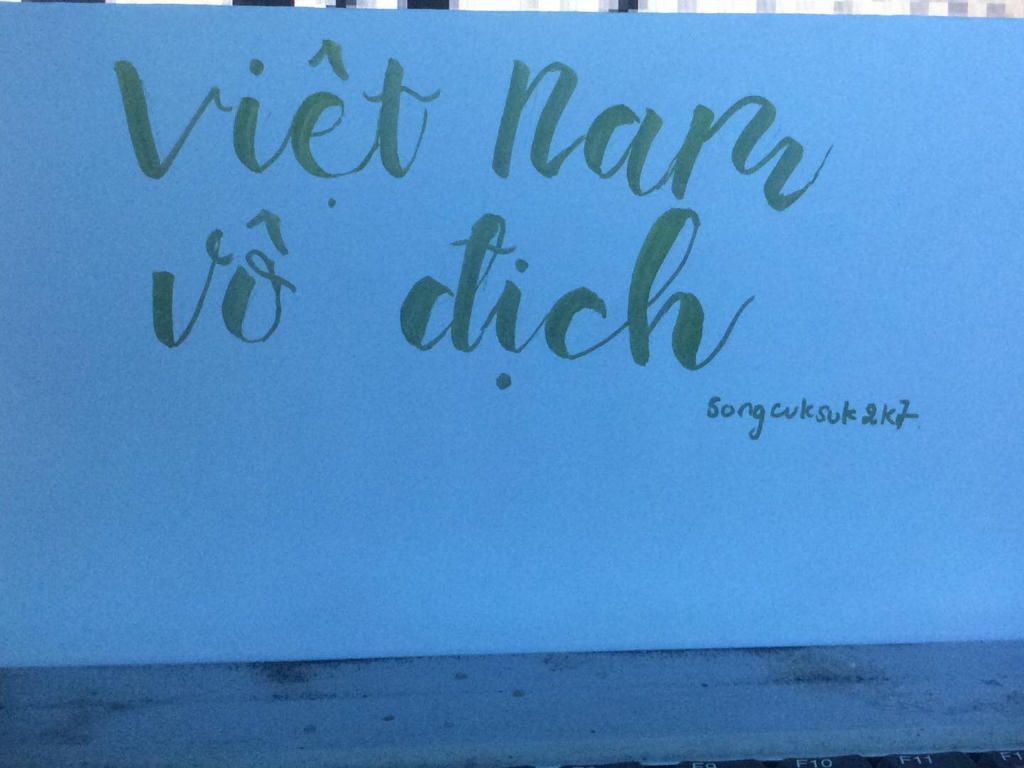 Việt Nam
vô địch
songcuksuk2k7
F9 F10 F11